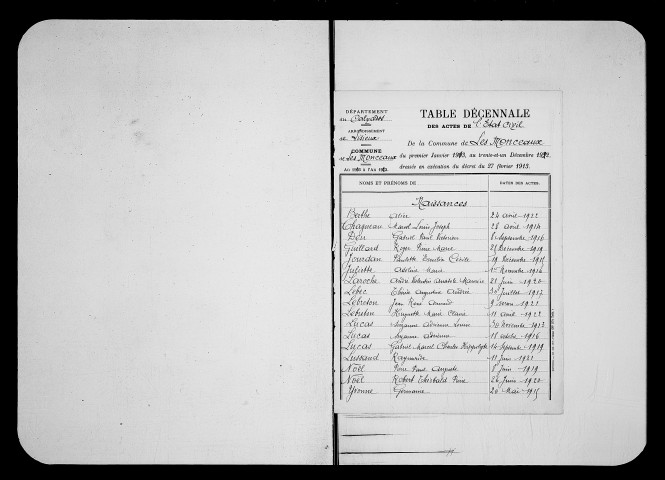 DÉPARTEMENT
du Calvados
ARRONDISSEMENT
de Lisieux
COMMUNE
de Les Monceaux
TABLE DÉCENNALE
DES ACTES DE l'État Civil
De la Commune de Les Monceaux
du premier Janvier 1913, au trente-et-un Décembre 1922
dressée en exécution du décret du 27 février 1913.
NOMS ET PRÉNOMS DE
DATES DES ACTES.
Naissances
Berthe 24 avril 1922
Chagneau Marcel Louis Joseph 28 avril 1914
Gabriel Paul 8 Septembre 1916
Guillard Roger Pierre Marie 25 Décembre 1919
Jourdan Paulette Cécile 19 Décembre 1915
Juliette Adeline Marie 1er Novembre 1916
Laroche André Anatole Maurice 21 Juin 1920
Augustine Andrée 30 Juillet 1917
Lebreton Jean René Armand 9 1921
Lebreton Huguette Marie Claire 11 avril 1922
Lucas Suzanne Adrienne Louise 30 Novembre 1913
Lucas Suzanne 18 octobre 1916
Lucas Gabriel Marcel Charles Hippolyte 14 Septembre 1919
Lussaud Raymonde 11 Juin 1921
Noël Pierre Paul Auguste 8 Juin 1919
Noël Robert Pierre 26 Juin 1920
Yvonne Germaine 20 Mai 1915